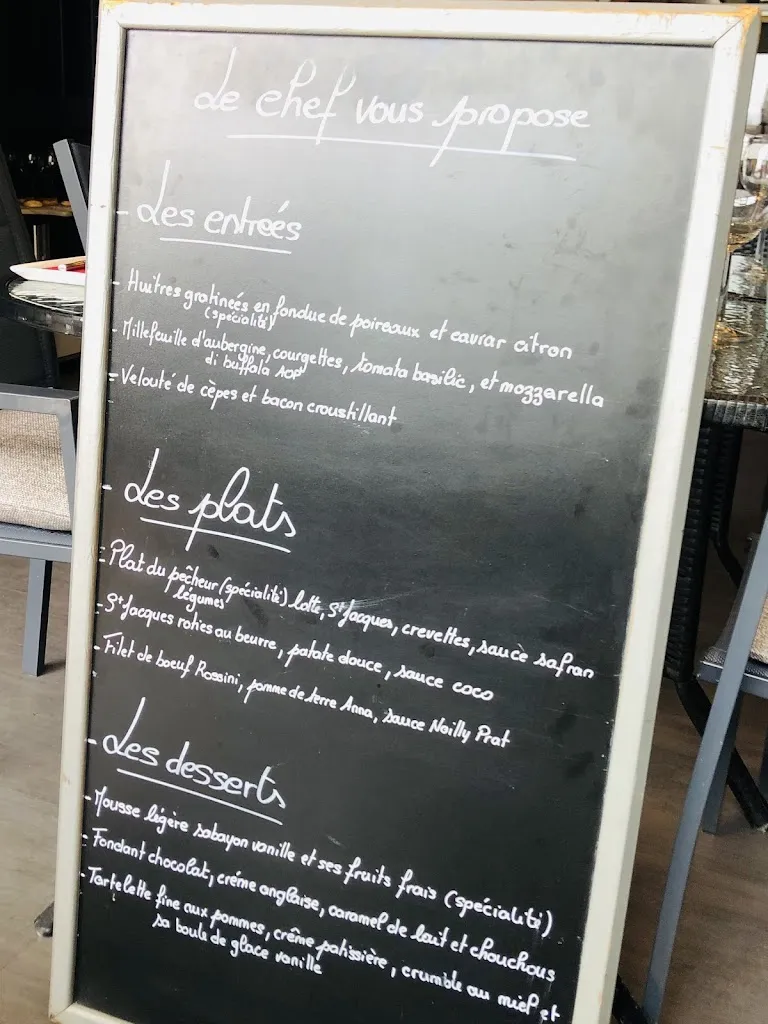 Le chef vous propose
- Les entrées
- Huîtres gratinées en fondue de poireaux et caviar citron
(spécialité)
- Millefeuille d'aubergine, courgettes, tomata basilic, et mozzarella
di buffala AOP
- Velouté de cèpes et bacon croustillant
- Les plats
- Plat du pêcheur (spécialité) lotte, St Jacques, crevettes, sauce safran
légumes
- St Jacques roties au beurre, patate douce, sauce coco
- Filet de boeuf Rossini, pomme de terre Anna, sauce Noilly Prat
- Les desserts
- Mousse légère sabayon vanille et ses fruits frais (spécialité)
- Fondant chocolat, créme anglaise, caramel de lait et chouchous
- Tartelette fine aux pommes, crême patissière, crumble au miel et
sa boule de glace vanille